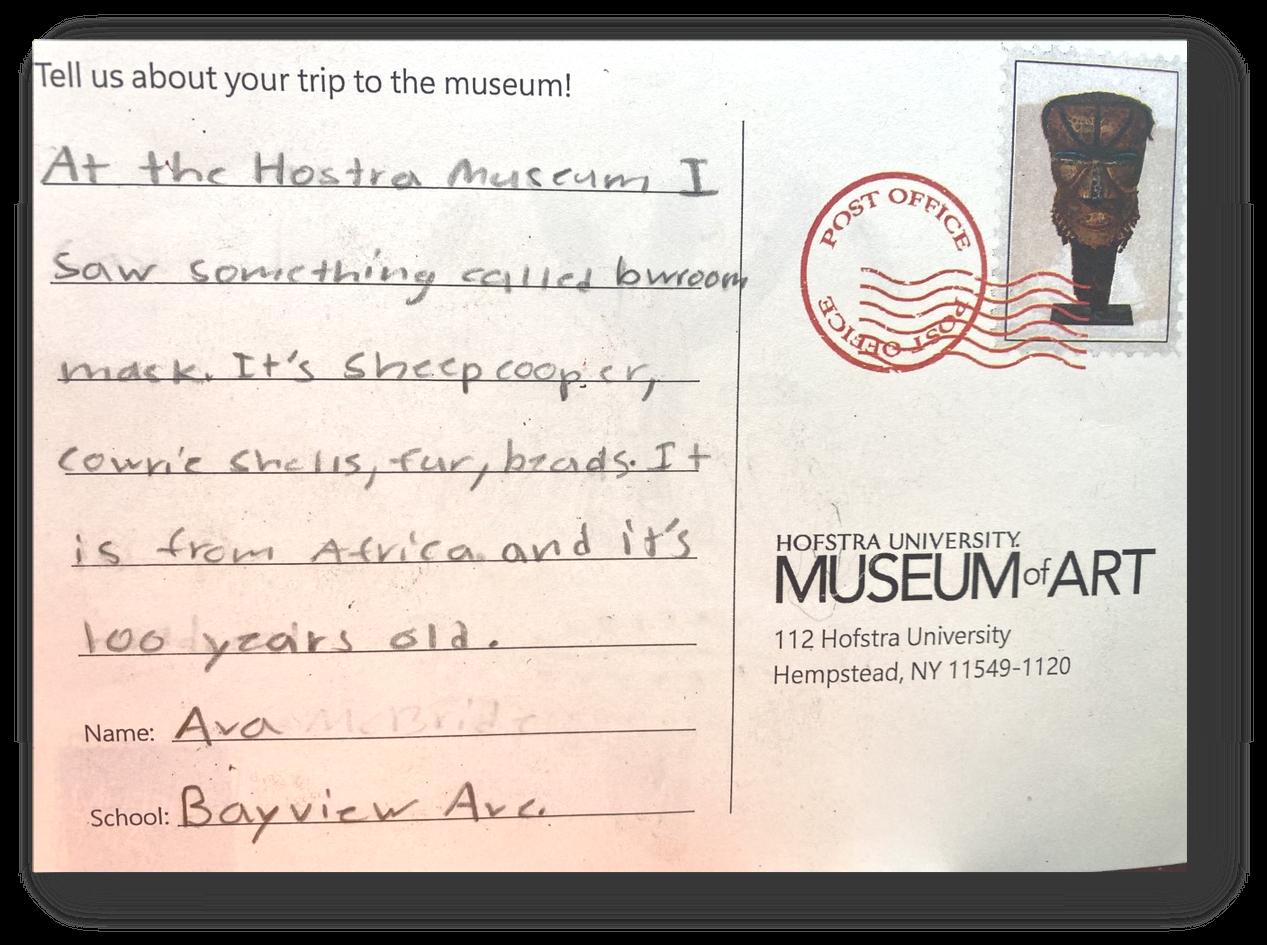 Tell us about your trip to the museum!
At the Hostra Museum I
Saw something called bwroom
mask. It's Sheepcooper,
Cowrie Shells, fur, beads. It
is from Africa and it's
100 years old.
Name: Ava
School: Bayview Ave.
POST OFFICE
POST OFFICE
HOFSTRA UNIVERSITY
MUSEUM of ART
112 Hofstra University
Hempstead, NY 11549-1120